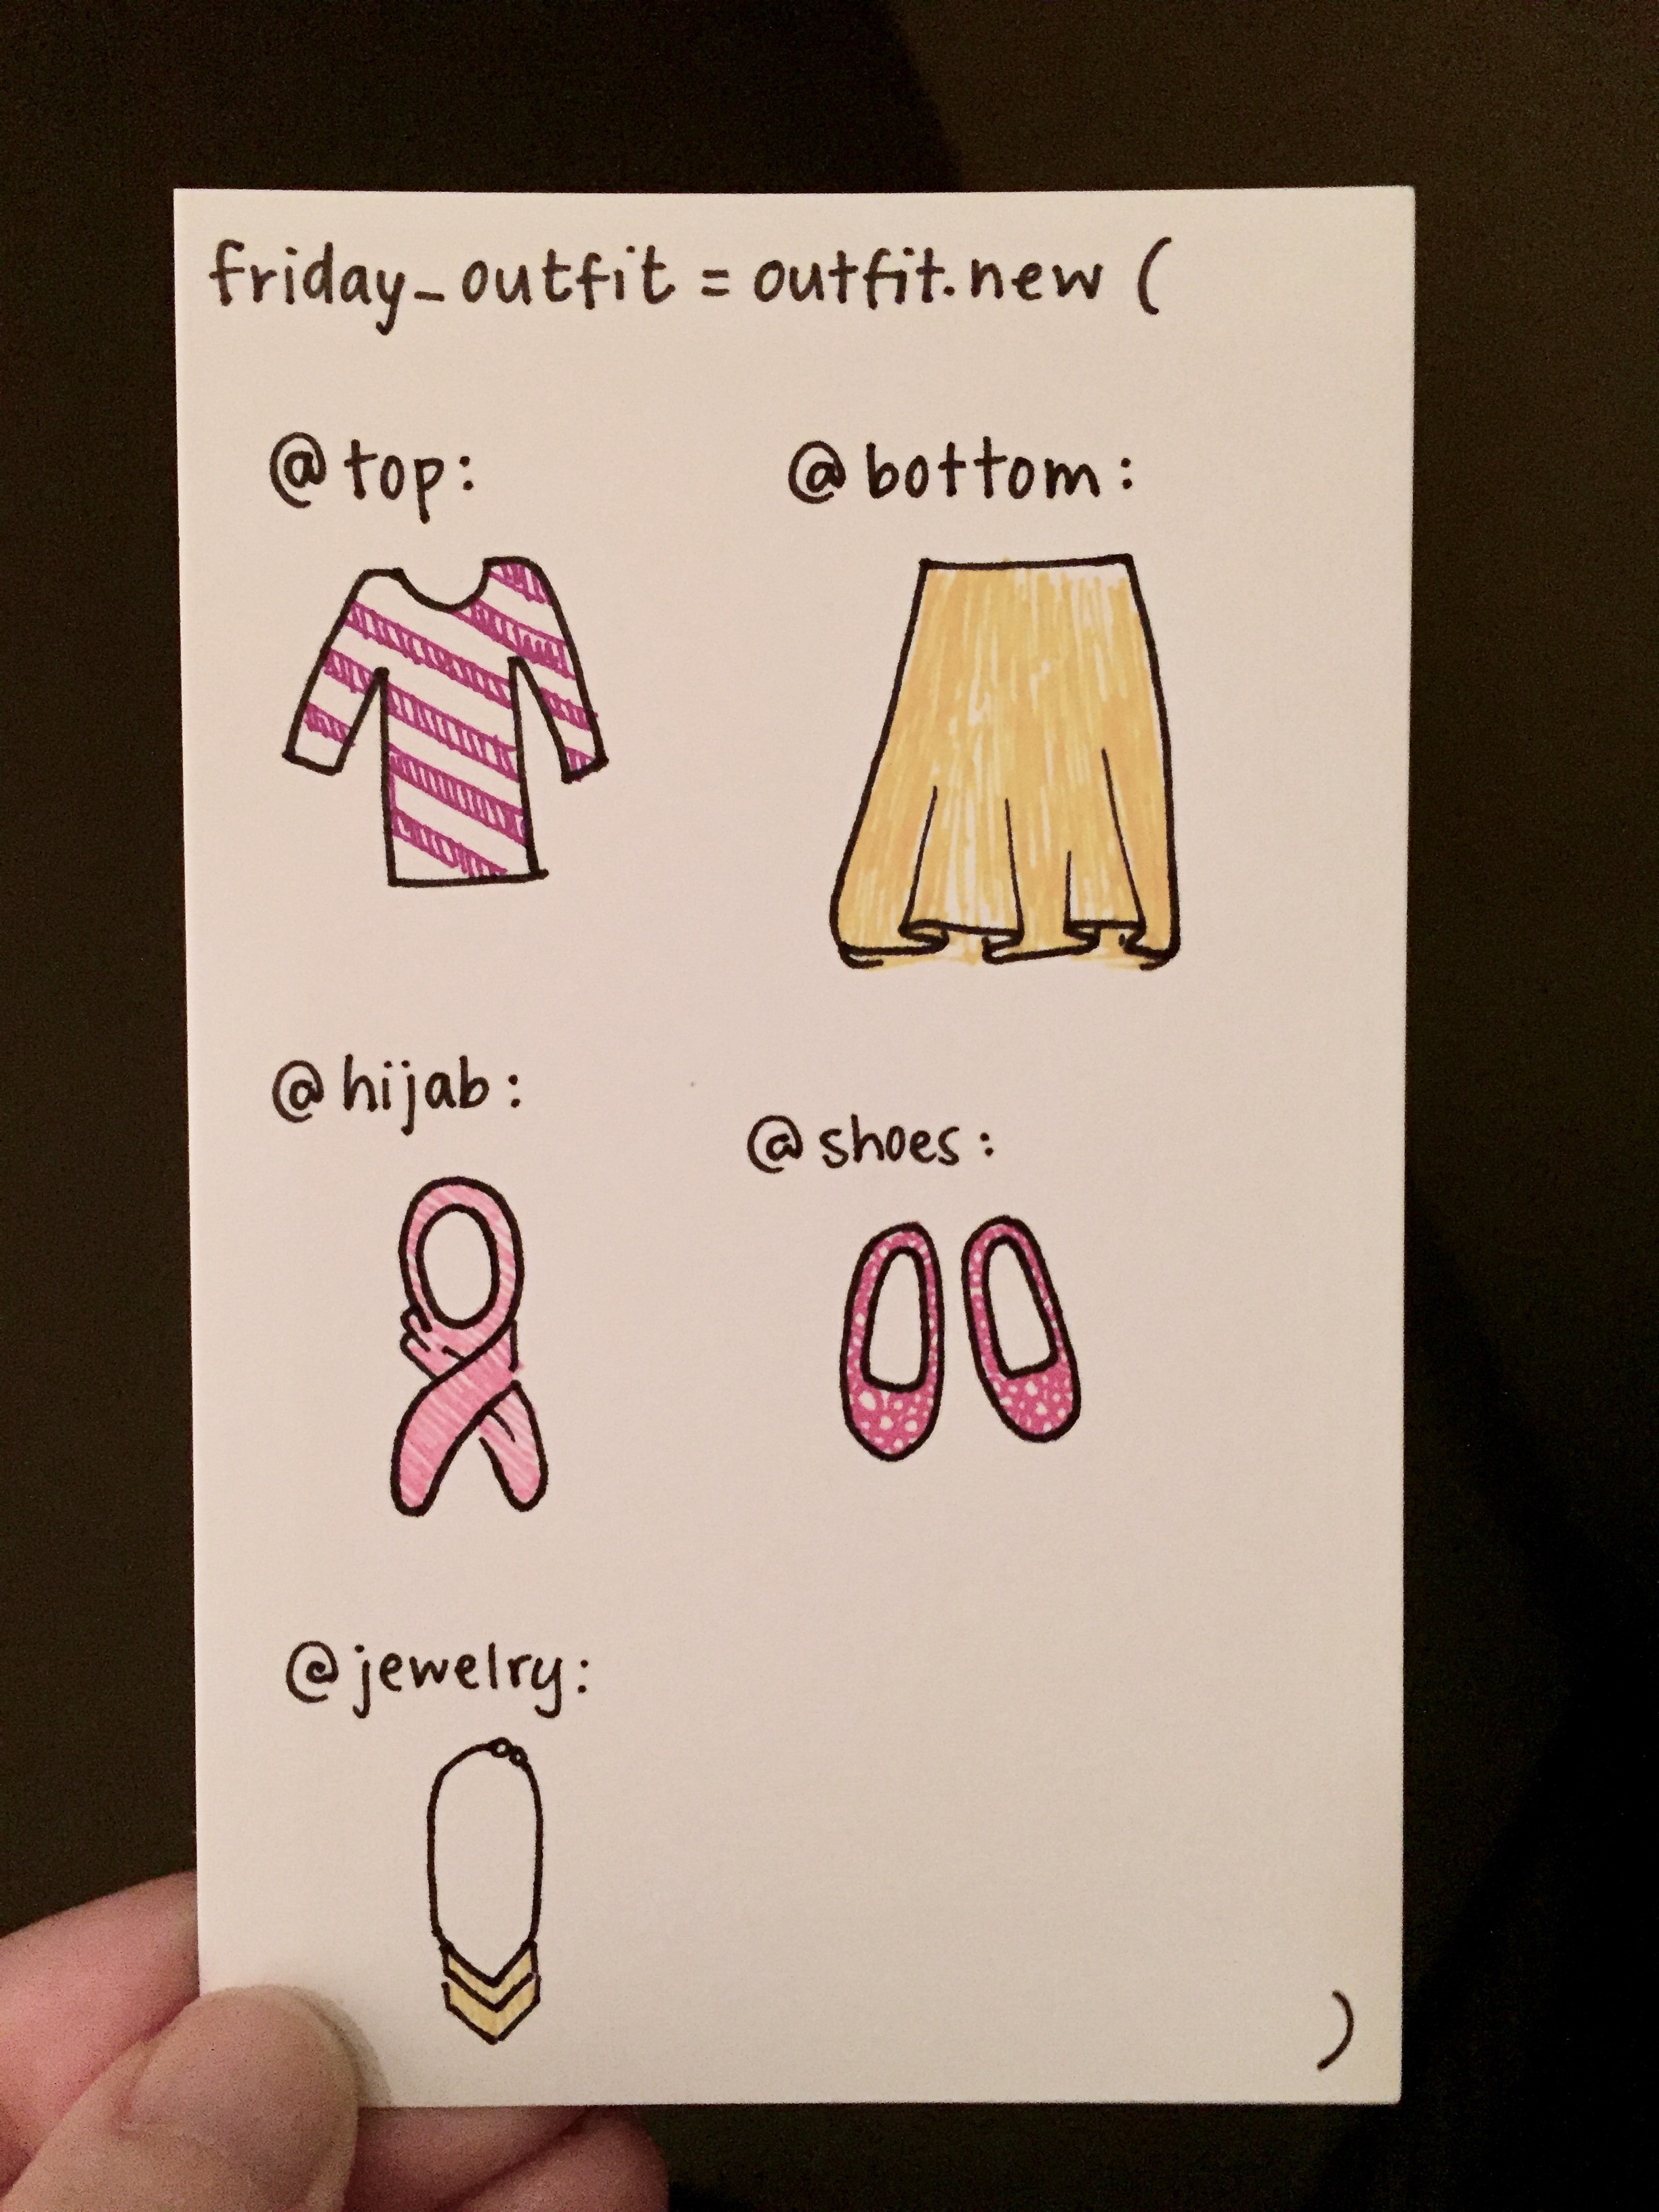 friday_outfit = outfit.new (
@top:
@bottom:
@hijab:
@shoes:
@jewelry:
)